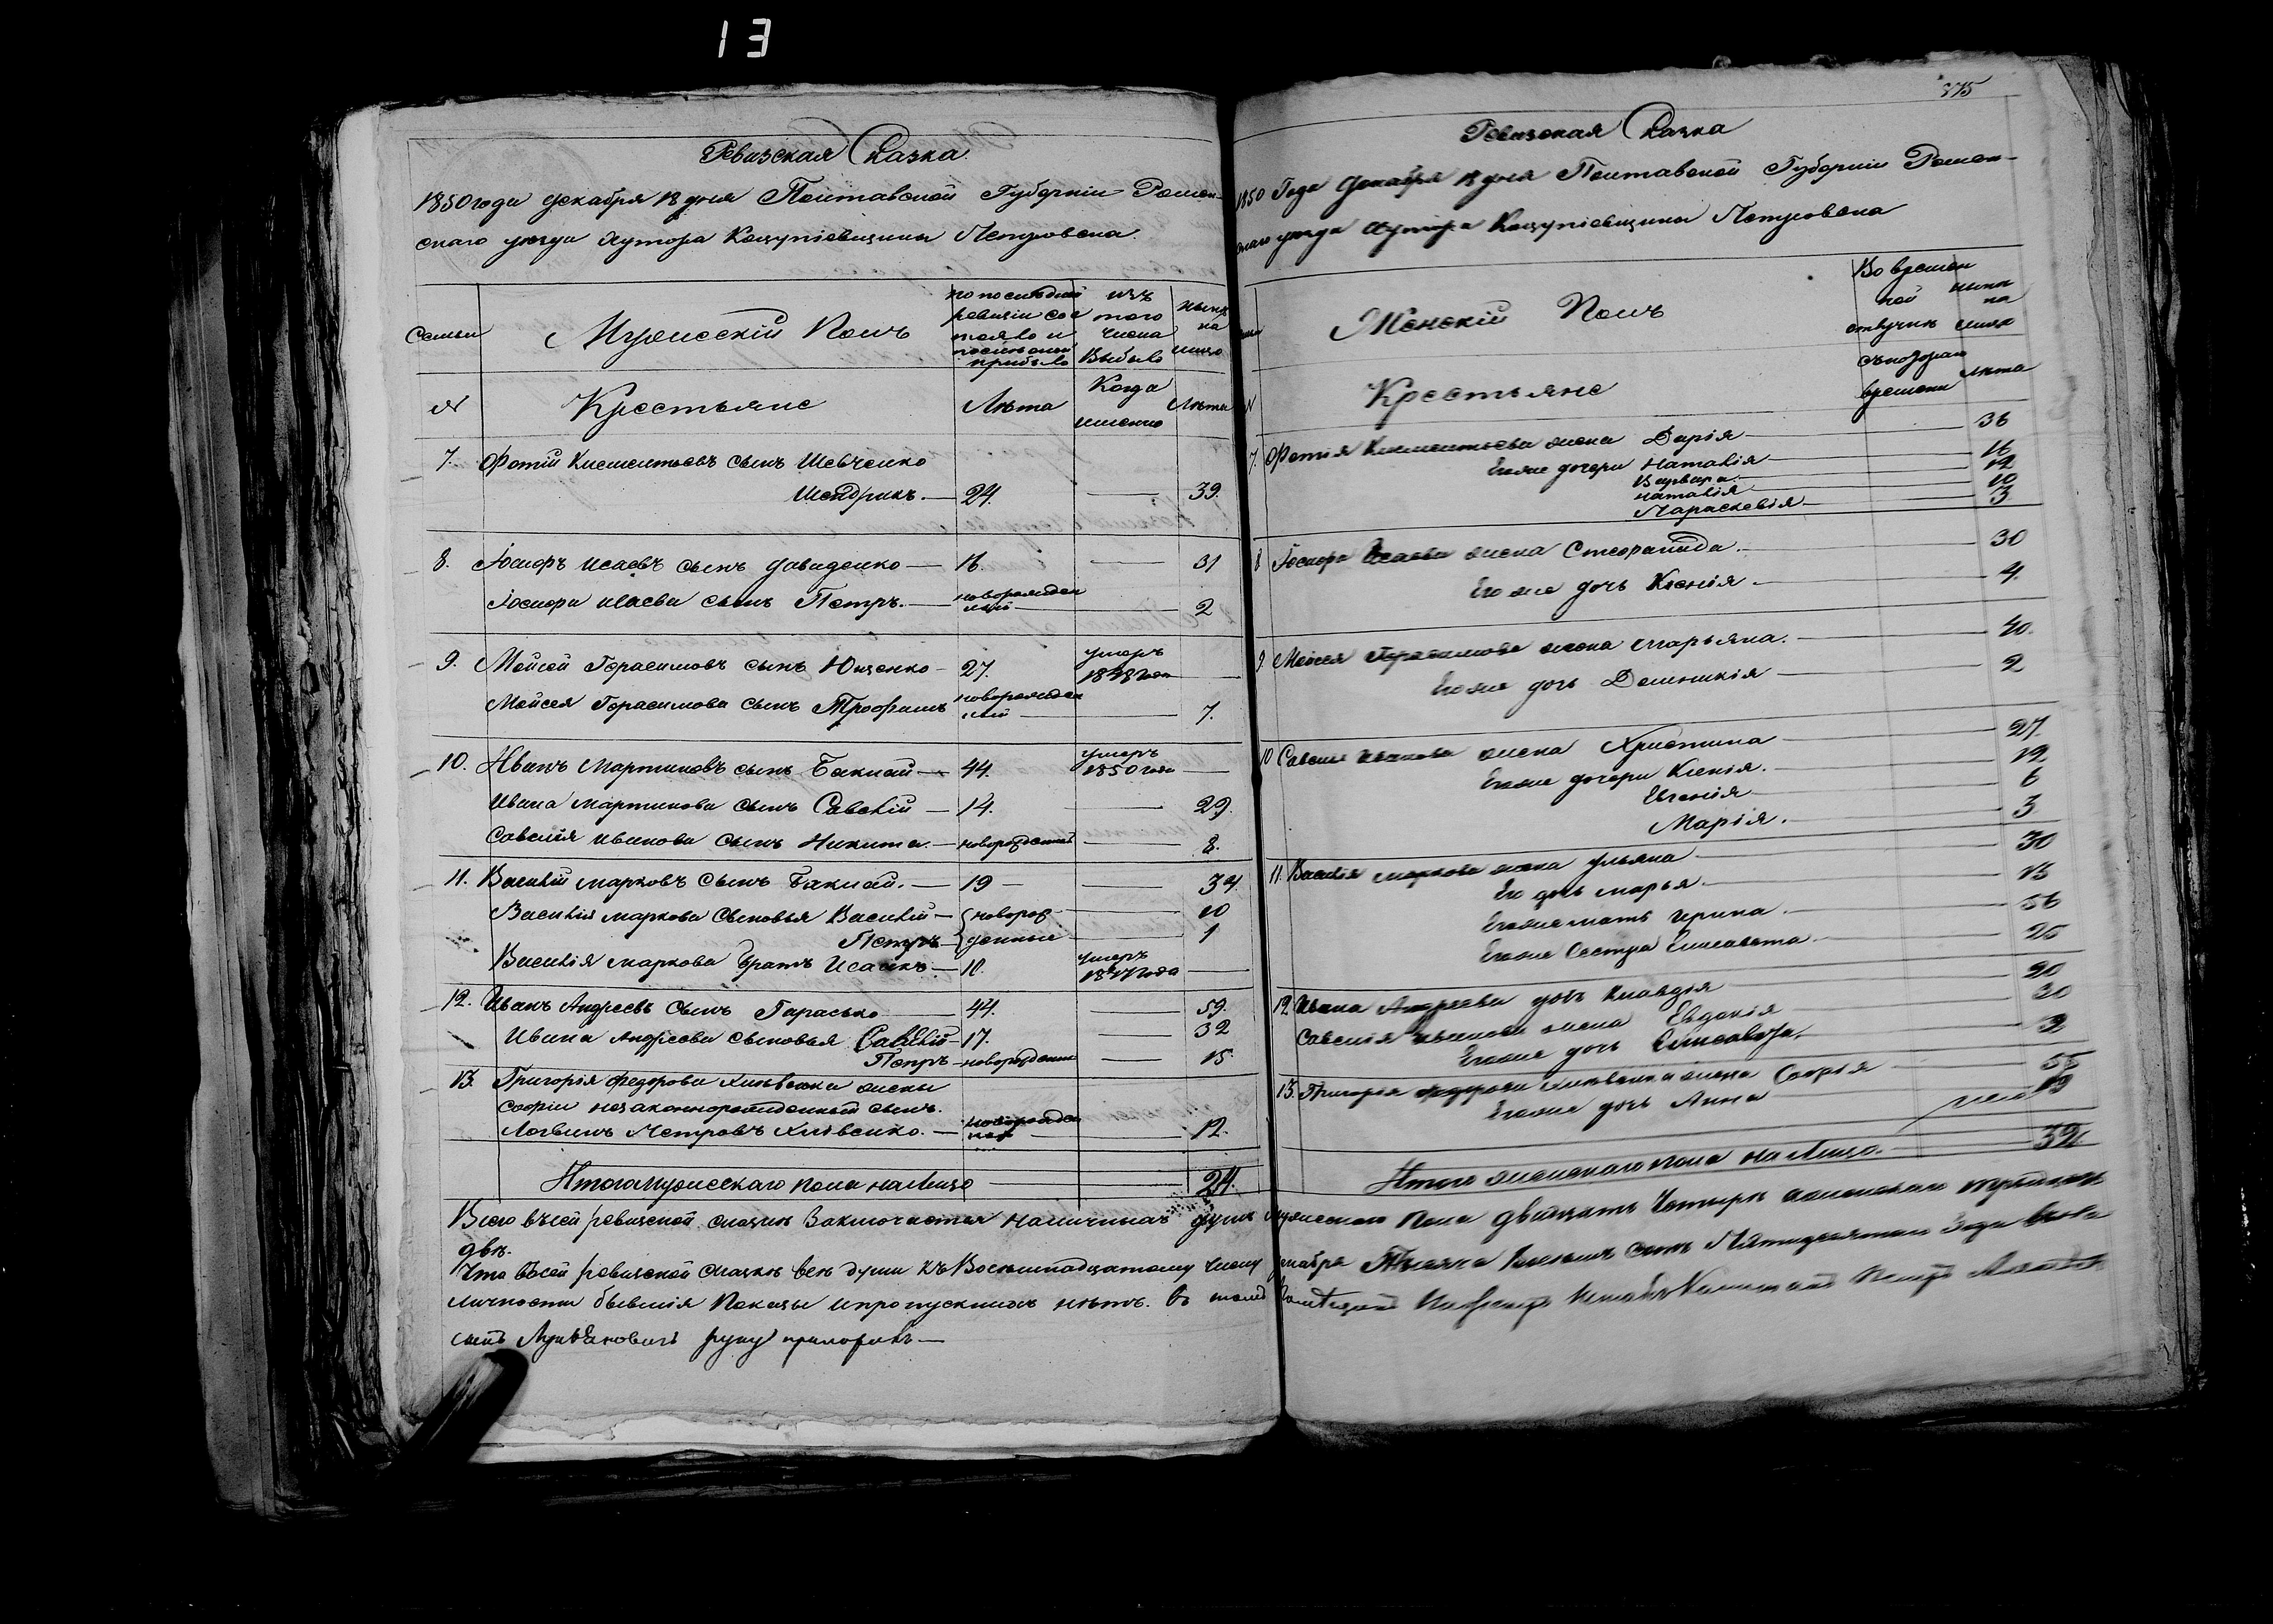 13
Ревизская Сказка
1850 года декабря 18 дня Полтавской Губернии Ромен-
скаго уезда хутора Петровска
Семьи
Мужеский Полъ
по последней ревизии состояло и после оной прибыло
изъ того числа Выбыло
ныне на лицо
N
Крестьяне
Лета
Когда именно
Лета
7. Фотий Климентьевъ сынъ Шевченко
24. 39.
8. Иосифъ Исаевъ сынъ Давиденко 16. 31
Иосифа Исаева сынъ Петръ. новорожденный 2
9. Мойсей Герасимовъ сынъ Ющенко 27. умеръ 1848 года
Мойсея Герасимова сынъ Трофимъ новорожденный 7.
10. Иванъ Мартиновъ сынъ Баклай 44. умеръ 1850 года
Ивана Мартинова сынъ Савелий 14. 29.
Савелия Иванова сынъ Никита. новорожденный 8.
11. Василий Марковъ сынъ Баклай. 19 34
Василия Маркова сыновья Василий новорож- 10
Петръ денные 1
Василия Маркова братъ Исаакъ 10. умеръ
12. Иванъ Андреевъ сынъ Гарасько 44. 59.
Ивана Андреева сыновья Савелий 17. 32
Петръ новорожденный 15
13. Григория Федорова жены
Софии незаконнорожденный сынъ.
Петровъ новорожден 12.
Итого мужескаго пола налицо 24.
375
Ревизская Сказка
1850 Года Декабря 18 дня Полтавской Губернии Ромен-
скаго уезда хутора Петровска
Женский Полъ
Во временной отлучке
ныне на лицо
съ котораго времени
лета
N
Крестьяне
7. Фотия Климентьева жена Дария 36
Его же дочери Наталия 16
Варвара 12
Наталия 10
Параскевия 3
8 Иосифа Исаева жена Стефанида. 30
Его же дочь Ксения 4.
9 Мойсея Герасимова жена Марьяна. 40.
Его же дочь Домникия 2
10 Савелия Иванова жена Христина 27.
Его же дочери Ксения. 12
Евгения 6
Мария. 3
11. Василия Маркова жена Ульяна 30
Его дочь Марья.
Его же мать Ирина. 56
Его же Сестра Елисавета. 25
12. Ивана Андреева дочь Клавдия 20
Савелия Иванова жена Евдокия 30
Его же дочь Елисавета.
13. Григория Федорова жена София 55
Его же дочь Анна
Итого женскаго пола на Лицо. 32
Всего въ сей ревизской сказке Заключается наличныхъ душъ мужескаго пола двадцать Четыре женскаго тридцать
две.
Что въ сей ревизской сказке все души къ Восемнадцатому числу декабря Тысяча восемь сотъ Пятидесятаго года въ на
личности бывшия Показаны и пропускныхъ нетъ. Въ томъ
руку приложилъ